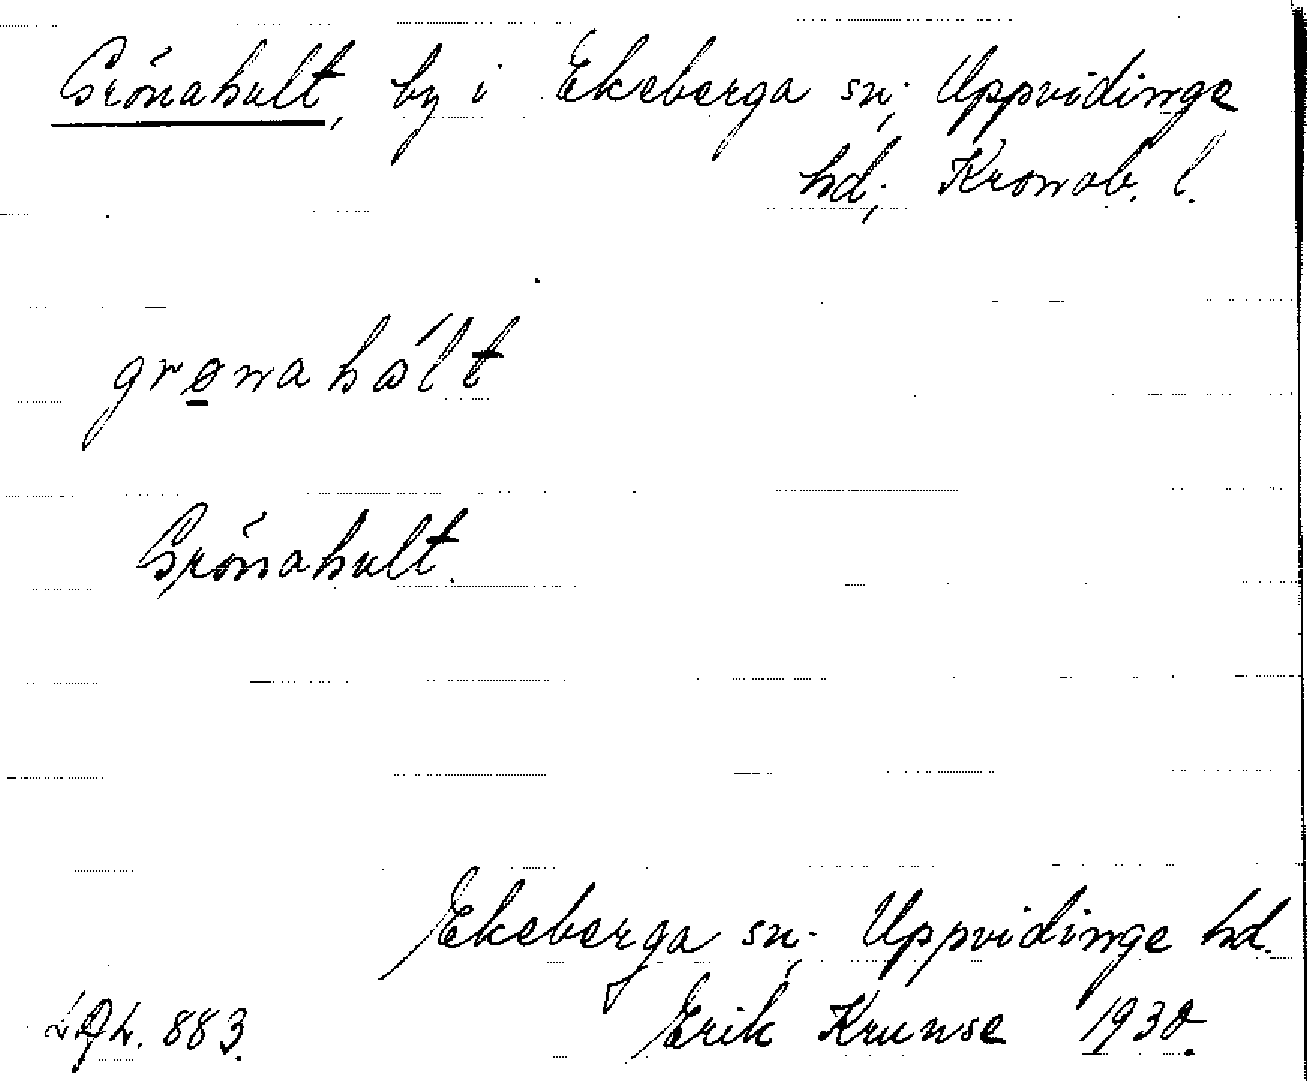 Grönahult, by i Ekeberga sn, Uppvidinge
hd, Kronob. l.
grønahàlt
Grönahult.
Ekeberga sn, Uppvidinge hd.
883. Erik Krunse 1930.